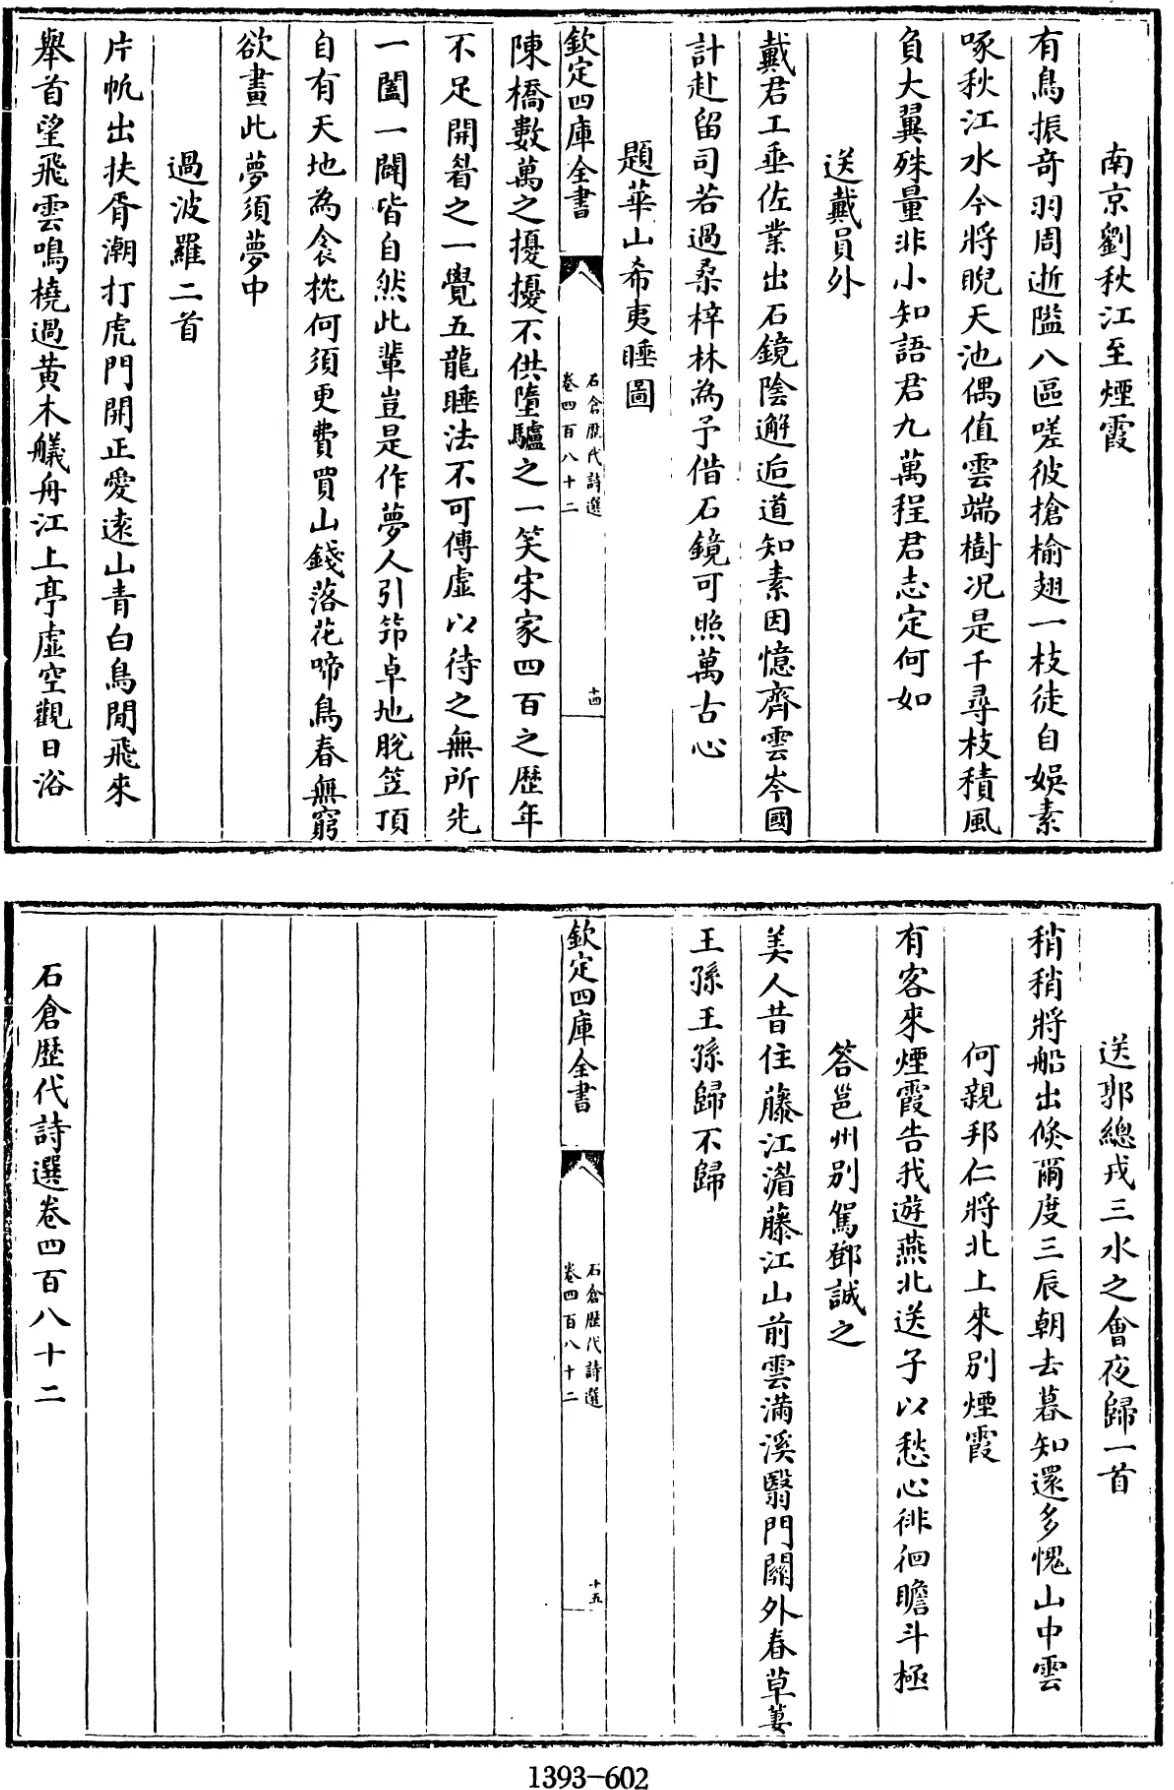 南京劉秋江至煙霞
有鳥振奇羽周逝隘八區嗟彼搶榆翅一枝徒自娛素
啄秋江水今將睨天池偶值雲端樹况是千尋枝積風
負大翼殊量非小知語君九萬程君志定何如
送戴員外
戴君工垂佐業出石鏡陰邂逅道知素因憶齊雲岑國
計赴留司若過桑梓林為予借石鏡可照萬古心
題華山希夷睡圖
欽定四庫全書
石倉歷代詩選
卷四百八十二
十四
陳橋數萬之擾擾不供墮驢之一笑宋家四百之歷年
不足開㫺之一覺五龍睡法不可傳虛以待之無所先
一闔一闢皆自然此輩豈是作夢人引笻卓地脫笠頂
自有天地為衾枕何須更費買山錢落花啼鳥春無窮
欲畫此夢須夢中
過波羅二首
片帆出扶胥潮打虎門開正愛遠山青白鳥閒飛來
舉首望飛雲鳴橈過黄木艤舟江上亭虛空觀日浴
送郭總戎三水之會夜歸一首
稍稍將船出倐爾度三辰朝去暮知還多愧山中雲
何親邦仁將北上來別煙霞
有客來煙霞告我遊燕北送子以愁心徘徊瞻斗極
答邕州別駕鄧誠之
美人昔住藤江湄藤江山前雲滿溪翳門關外春草萋
王孫王孫歸不歸
欽定四庫全書
石倉歷代詩選
卷四百八十二
十五
石倉歷代詩選卷四百八十二
1393-602